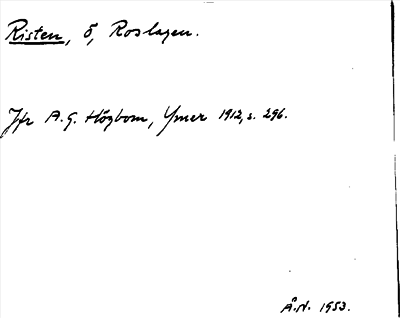 Risten, ö, Roslagen.
Jfr A.G. Högbom, Ymer 1912, s. 296.
Å.N. 1953.